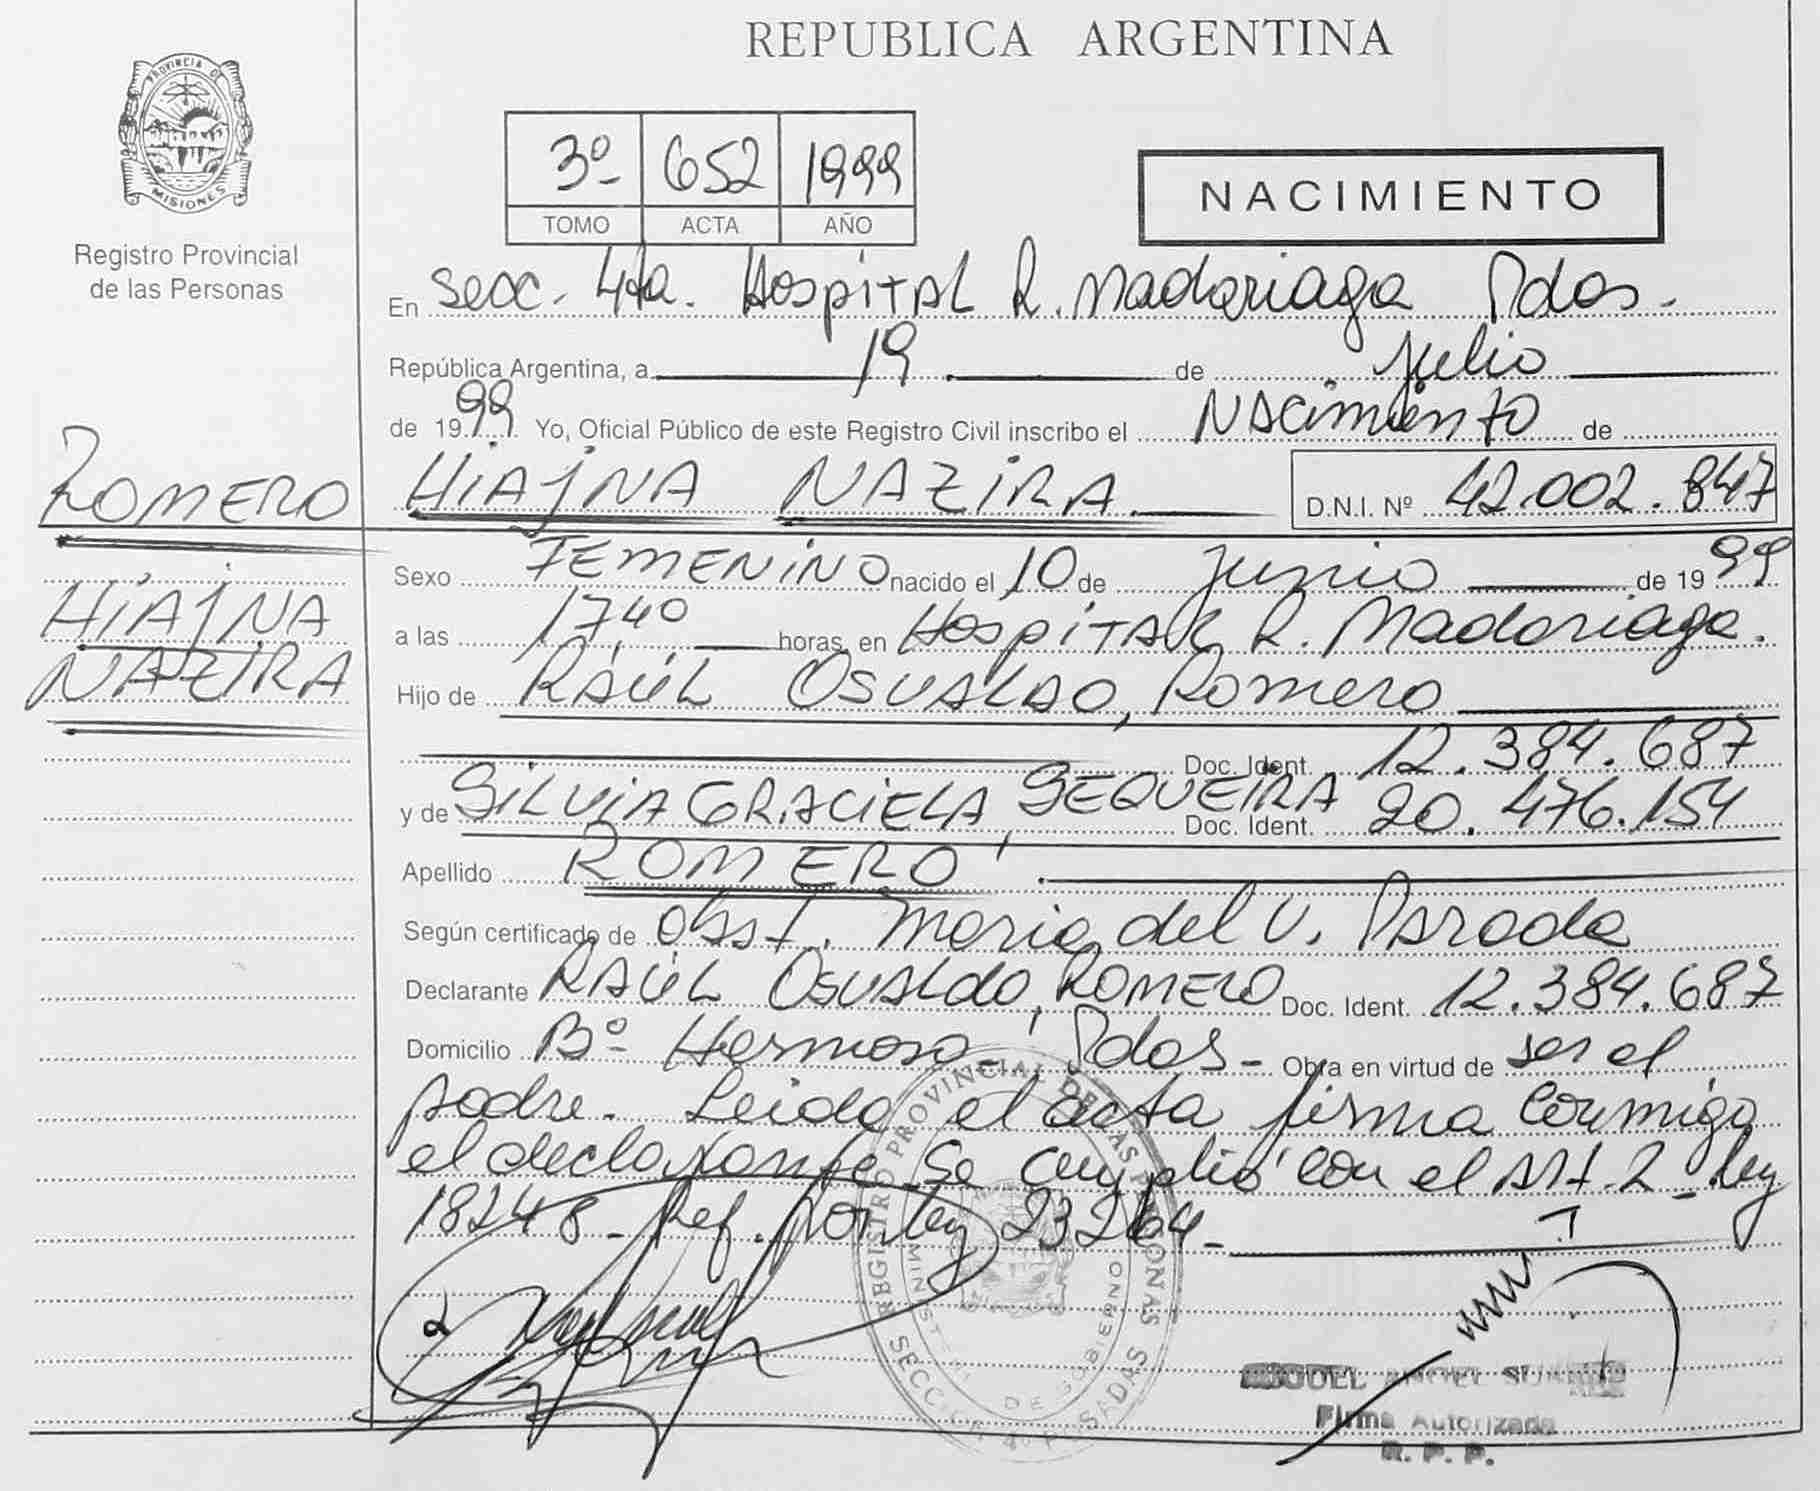 REPUBLICA ARGENTINA
PROVINCIA DE
MISIONES
Registro Provincial
de las Personas
3º 652 1999
TOMO ACTA AÑO
NACIMIENTO
En Secc. 4ta. Hospital R. Madariaga Pdas.
República Argentina, a 19 de Julio
de 1999 Yo, Oficial Público de este Registro Civil inscribo el Nacimiento de
ROMERO
HIAJNA NAZIRA
HIAJNA NAZIRA D.N.I. Nº 42.002.847
Sexo FEMENINO nacido el 10 de Junio de 1999
a las 1740 horas, en Hospital R. Madariaga.
Hijo de RAÚL OSVALDO, Romero
Doc. Ident. 12.384.687
y de SILVIA GRACIELA, SEQUEIRA Doc. Ident. 20.476.154
Apellido ROMERO
Según certificado de Obst. Maria del V. Parada
Declarante RAÚL OSVALDO, ROMERO Doc. Ident. 12.384.687
Domicilio Bº Hermoso - Pdas - Obra en virtud de ser el
padre. Leida el acta firma conmigo
el declarante. Se cumplió con el Art. 2 - ley
18248 - Ref. por ley 23264 -
REGISTRO PROVINCIAL DE LAS PERSONAS
MINISTERIO DE GOBIERNO
SECCION 4º POSADAS
MIGUEL ANGEL SUAREZ
Firma Autorizada
R. P. P.